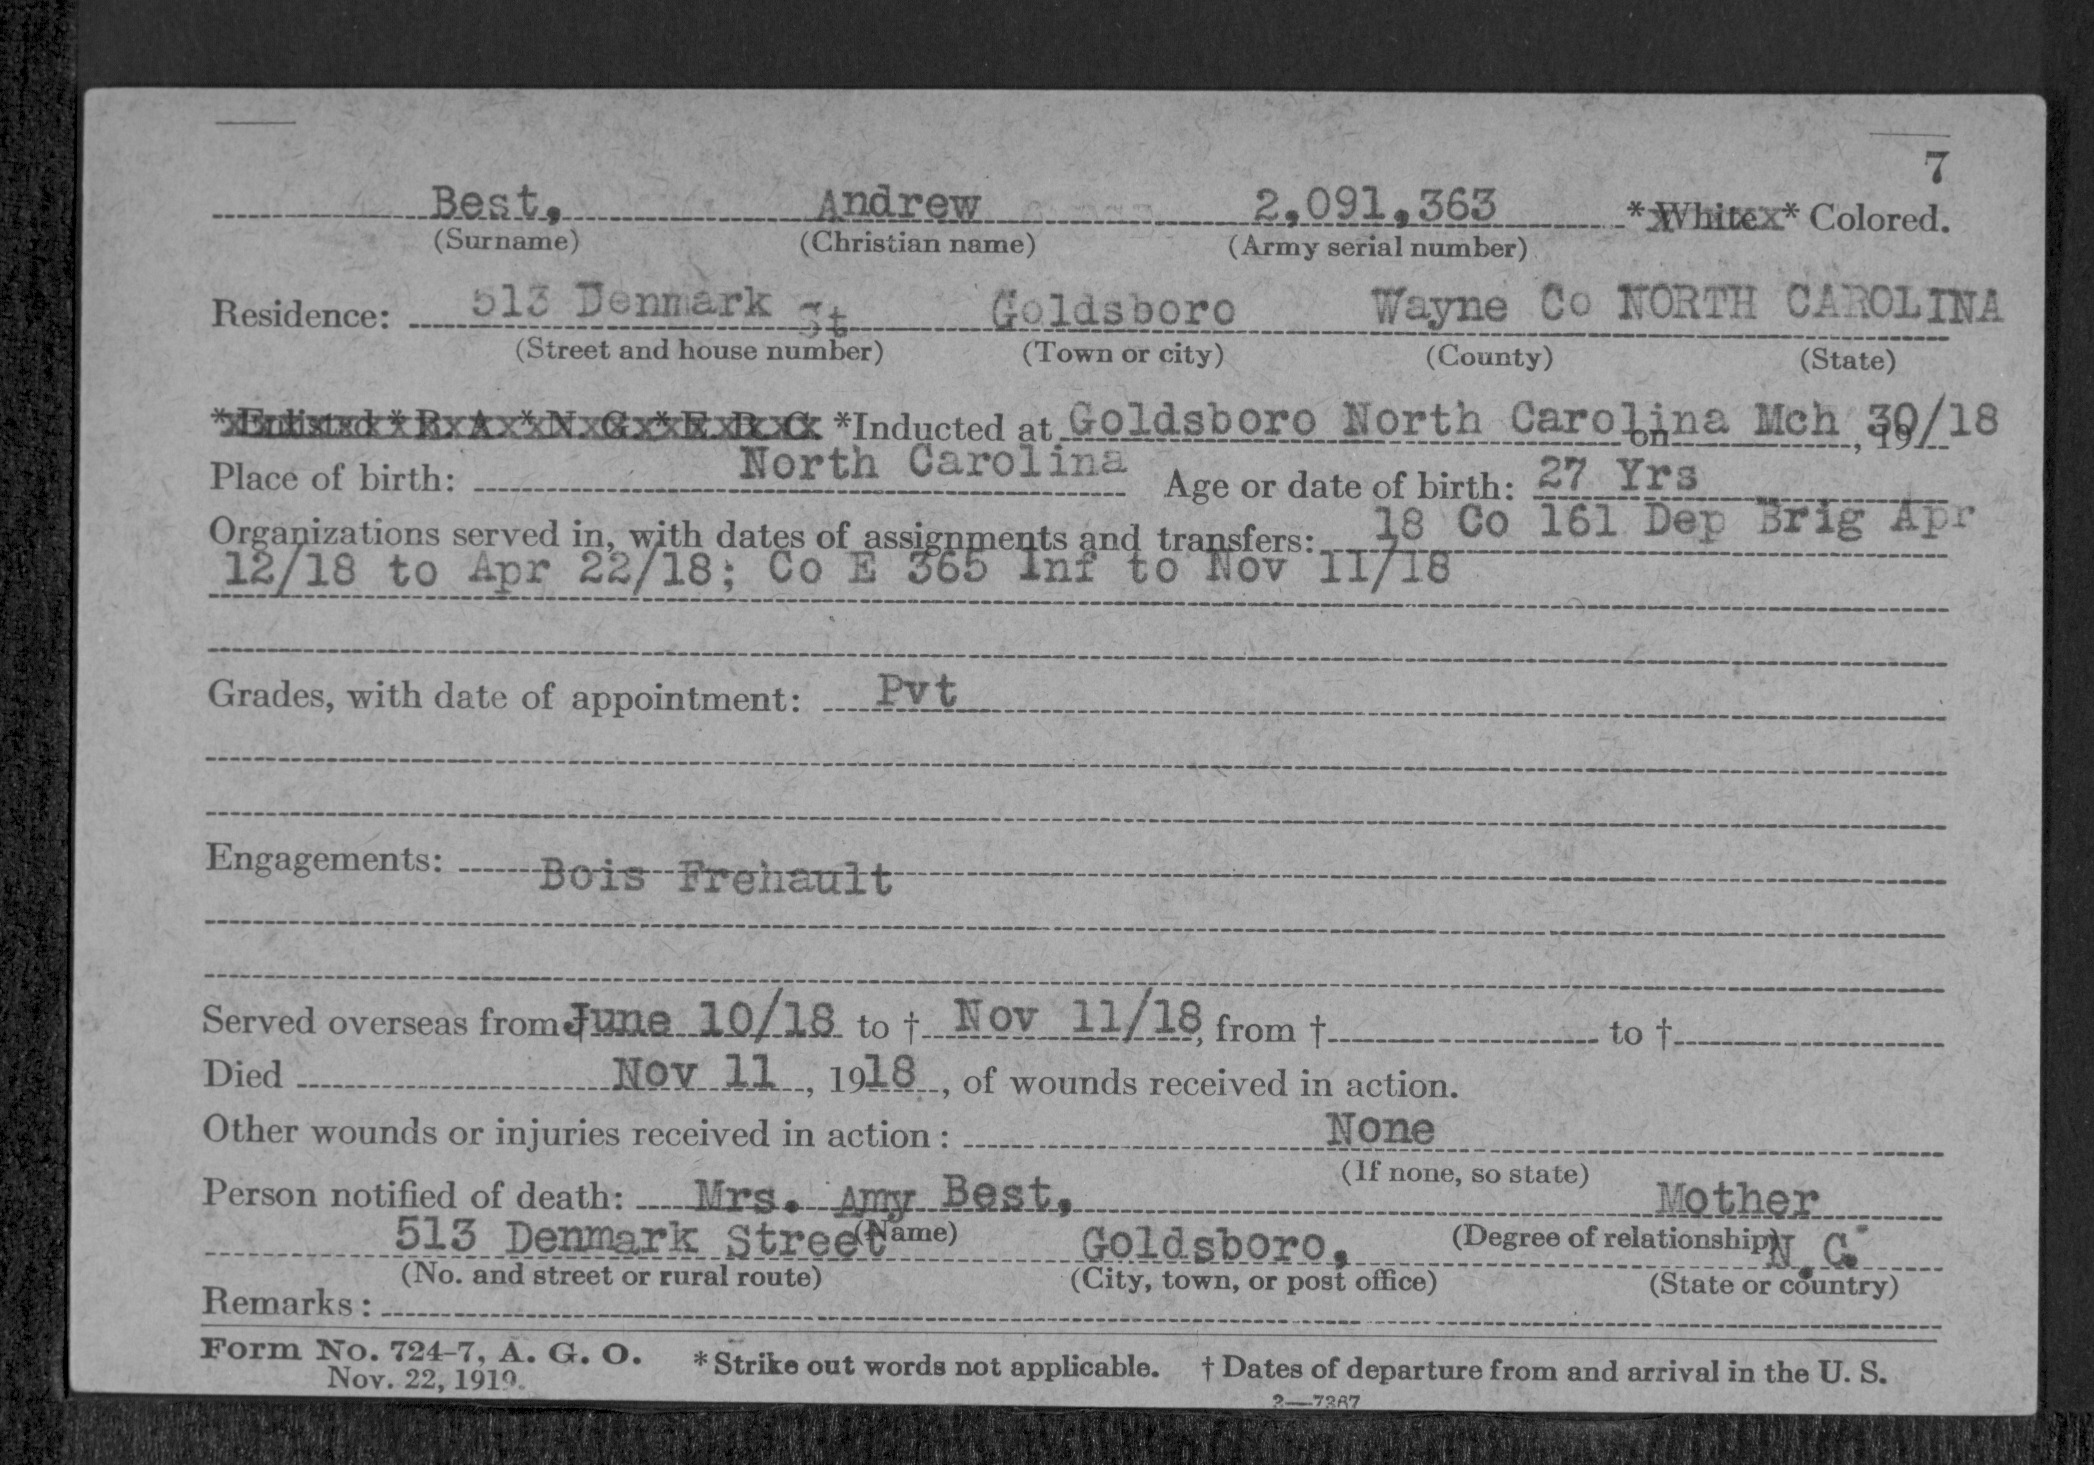 7
Best, Andrew 2,091,363 *White* Colored.
(Surname) (Christian name) (Army serial number)
Residence: 513 Denmark St Goldsboro Wayne Co NORTH CAROLINA
(Street and house number) (Town or city) (County) (State)
*Enlisted *R. A. *N. G. *E. R. C. *Inducted at Goldsboro North Carolina on Mch 30/18, 19
Place of birth: North Carolina Age or date of birth: 27 Yrs
Organizations served in, with dates of assignments and transfers: 18 Co 161 Dep Brig Apr
12/18 to Apr 22/18; Co E 365 Inf to Nov 11/18
Grades, with date of appointment: Pvt
Engagements: Bois Frehault
Served overseas from † June 10/18 to † Nov 11/18, from † to †
Died Nov 11, 1918, of wounds received in action.
Other wounds or injuries received in action: None
(If none, so state)
Person notified of death: Mrs. Amy Best, Mother
(Name) (Degree of relationship)
513 Denmark Street Goldsboro, N.C.
(No. and street or rural route) (City, town, or post office) (State or country)
Remarks:
Form No. 724-7, A. G. O. *Strike out words not applicable. † Dates of departure from and arrival in the U. S.
Nov. 22, 1919.
3—7367